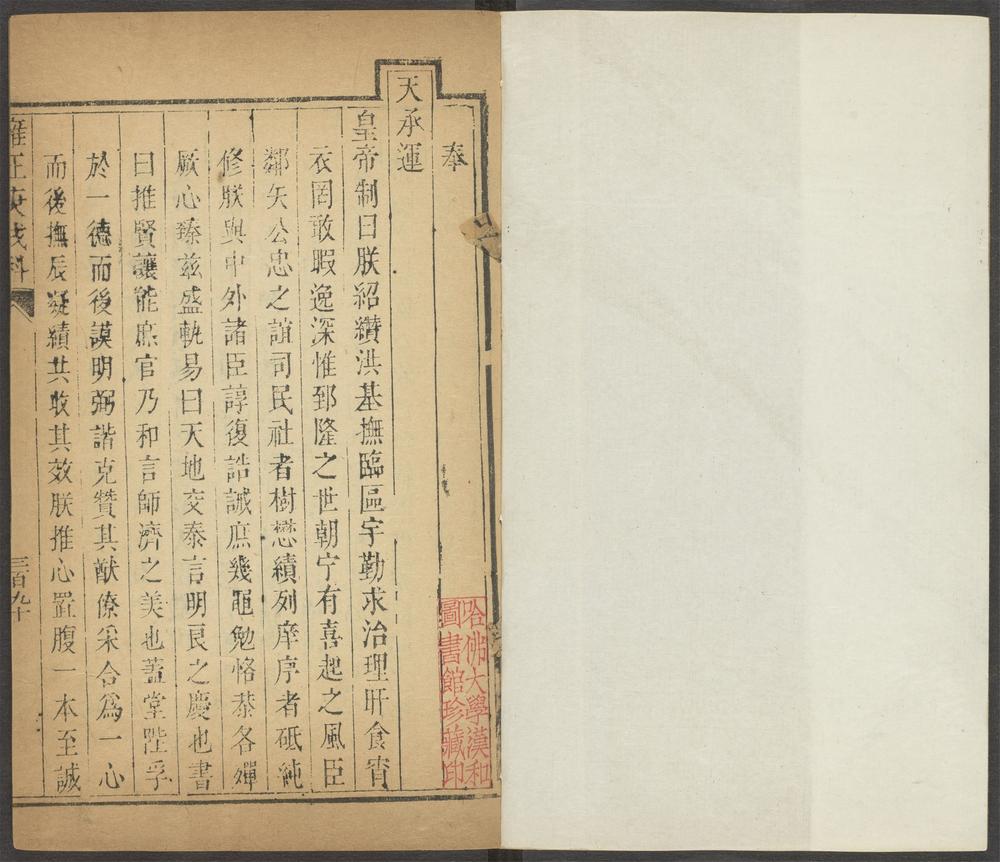 奉
天承運
皇帝制曰朕紹纘洪基撫臨區宇勤求治理旰食宵
衣罔敢暇逸深惟郅隆之世朝宁有喜起之風臣
鄰矢公忠之誼司民社者樹懋績列庠序者砥純
修朕與中外諸臣諄復誥誡庶幾黽勉恪恭各殫
厥心臻茲盛軌易曰天地交泰言明良之慶也書
曰推賢讓能庶官乃和言師濟之美也蓋堂陛孚
於一德而後謨明弼諧克贊其猷僚寀合爲一心
而後撫辰凝績共收其效朕推心置腹一本至誠
雍正庚戌科
三百九十
哈佛大學漢和
圖書館珍藏印